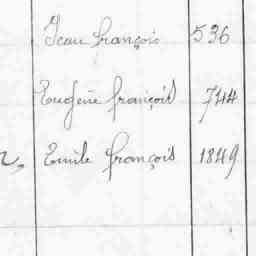 Jean françois 536
Eugène françois 744
Emile françois 1849